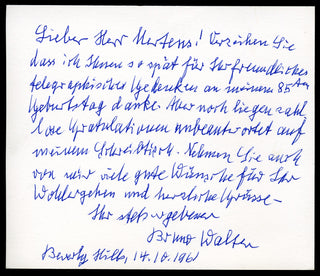 Lieber Herr Mertens! Verzeihen Sie
dass ich Ihnen so spät für Ihr freundliches
telegraphisches Gedenken an meinem 85ten
Geburtstag danke. Aber noch liegen zahl
lose Gratulationen unbeantwortet auf
meinem Schreibtisch. Nehmen Sie auch
von mir viele gute Wünsche für Ihr
Wohlergehen und herzliche Grüsse –
Ihr stets ergebener
Bruno Walter
Beverly Hills, 14.10.1961